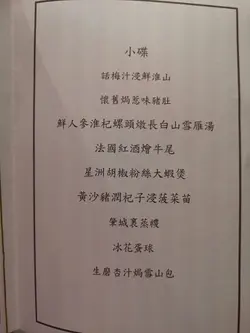 小碟
話梅汁浸鮮淮山
懷舊焗葱味豬肚
鮮人參淮杞螺頭燉長白山雪雁湯
法國紅酒燴牛尾
星洲胡椒粉絲大蝦煲
黃沙豬潤杞子浸菠菜苗
肇城裹蒸糭
冰花蛋球
生磨杏汁焗雪山包